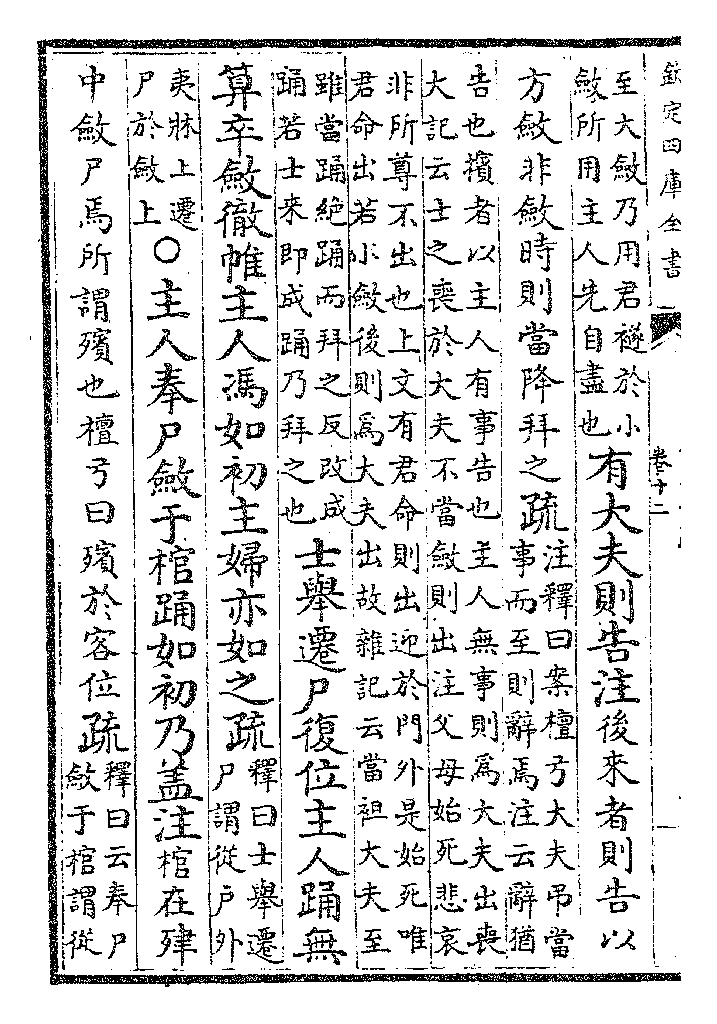 欽定四庫全書
卷十二
至大斂乃用君襚於小
斂所用主人先自盡也
有大夫則告注後來者則告以
方斂非斂時則當降拜之疏
注釋曰案檀弓大夫弔當
事而至則辭焉注云辭猶
告也擯者以主人有事告也主人無事則爲大夫出喪
大記云士之喪於大夫不當斂則出注父母始死悲哀
非所尊不出也上文有君命則出迎於門外是始死唯
君命出若小斂後則爲大夫出故雜記云當袒大夫至
雖當踊絶踊而拜之反改成
踊若士來即成踊乃拜之也
士舉遷尸復位主人踊無
算卒斂徹帷主人馮如初主婦亦如之疏
釋曰士舉遷
尸謂從戶外
夷牀上遷
尸於斂上
○主人奉尸斂于棺踊如初乃盖注棺在肂
中斂尸焉所謂殯也檀弓曰殯於客位疏
釋曰云奉尸
斂于棺謂從